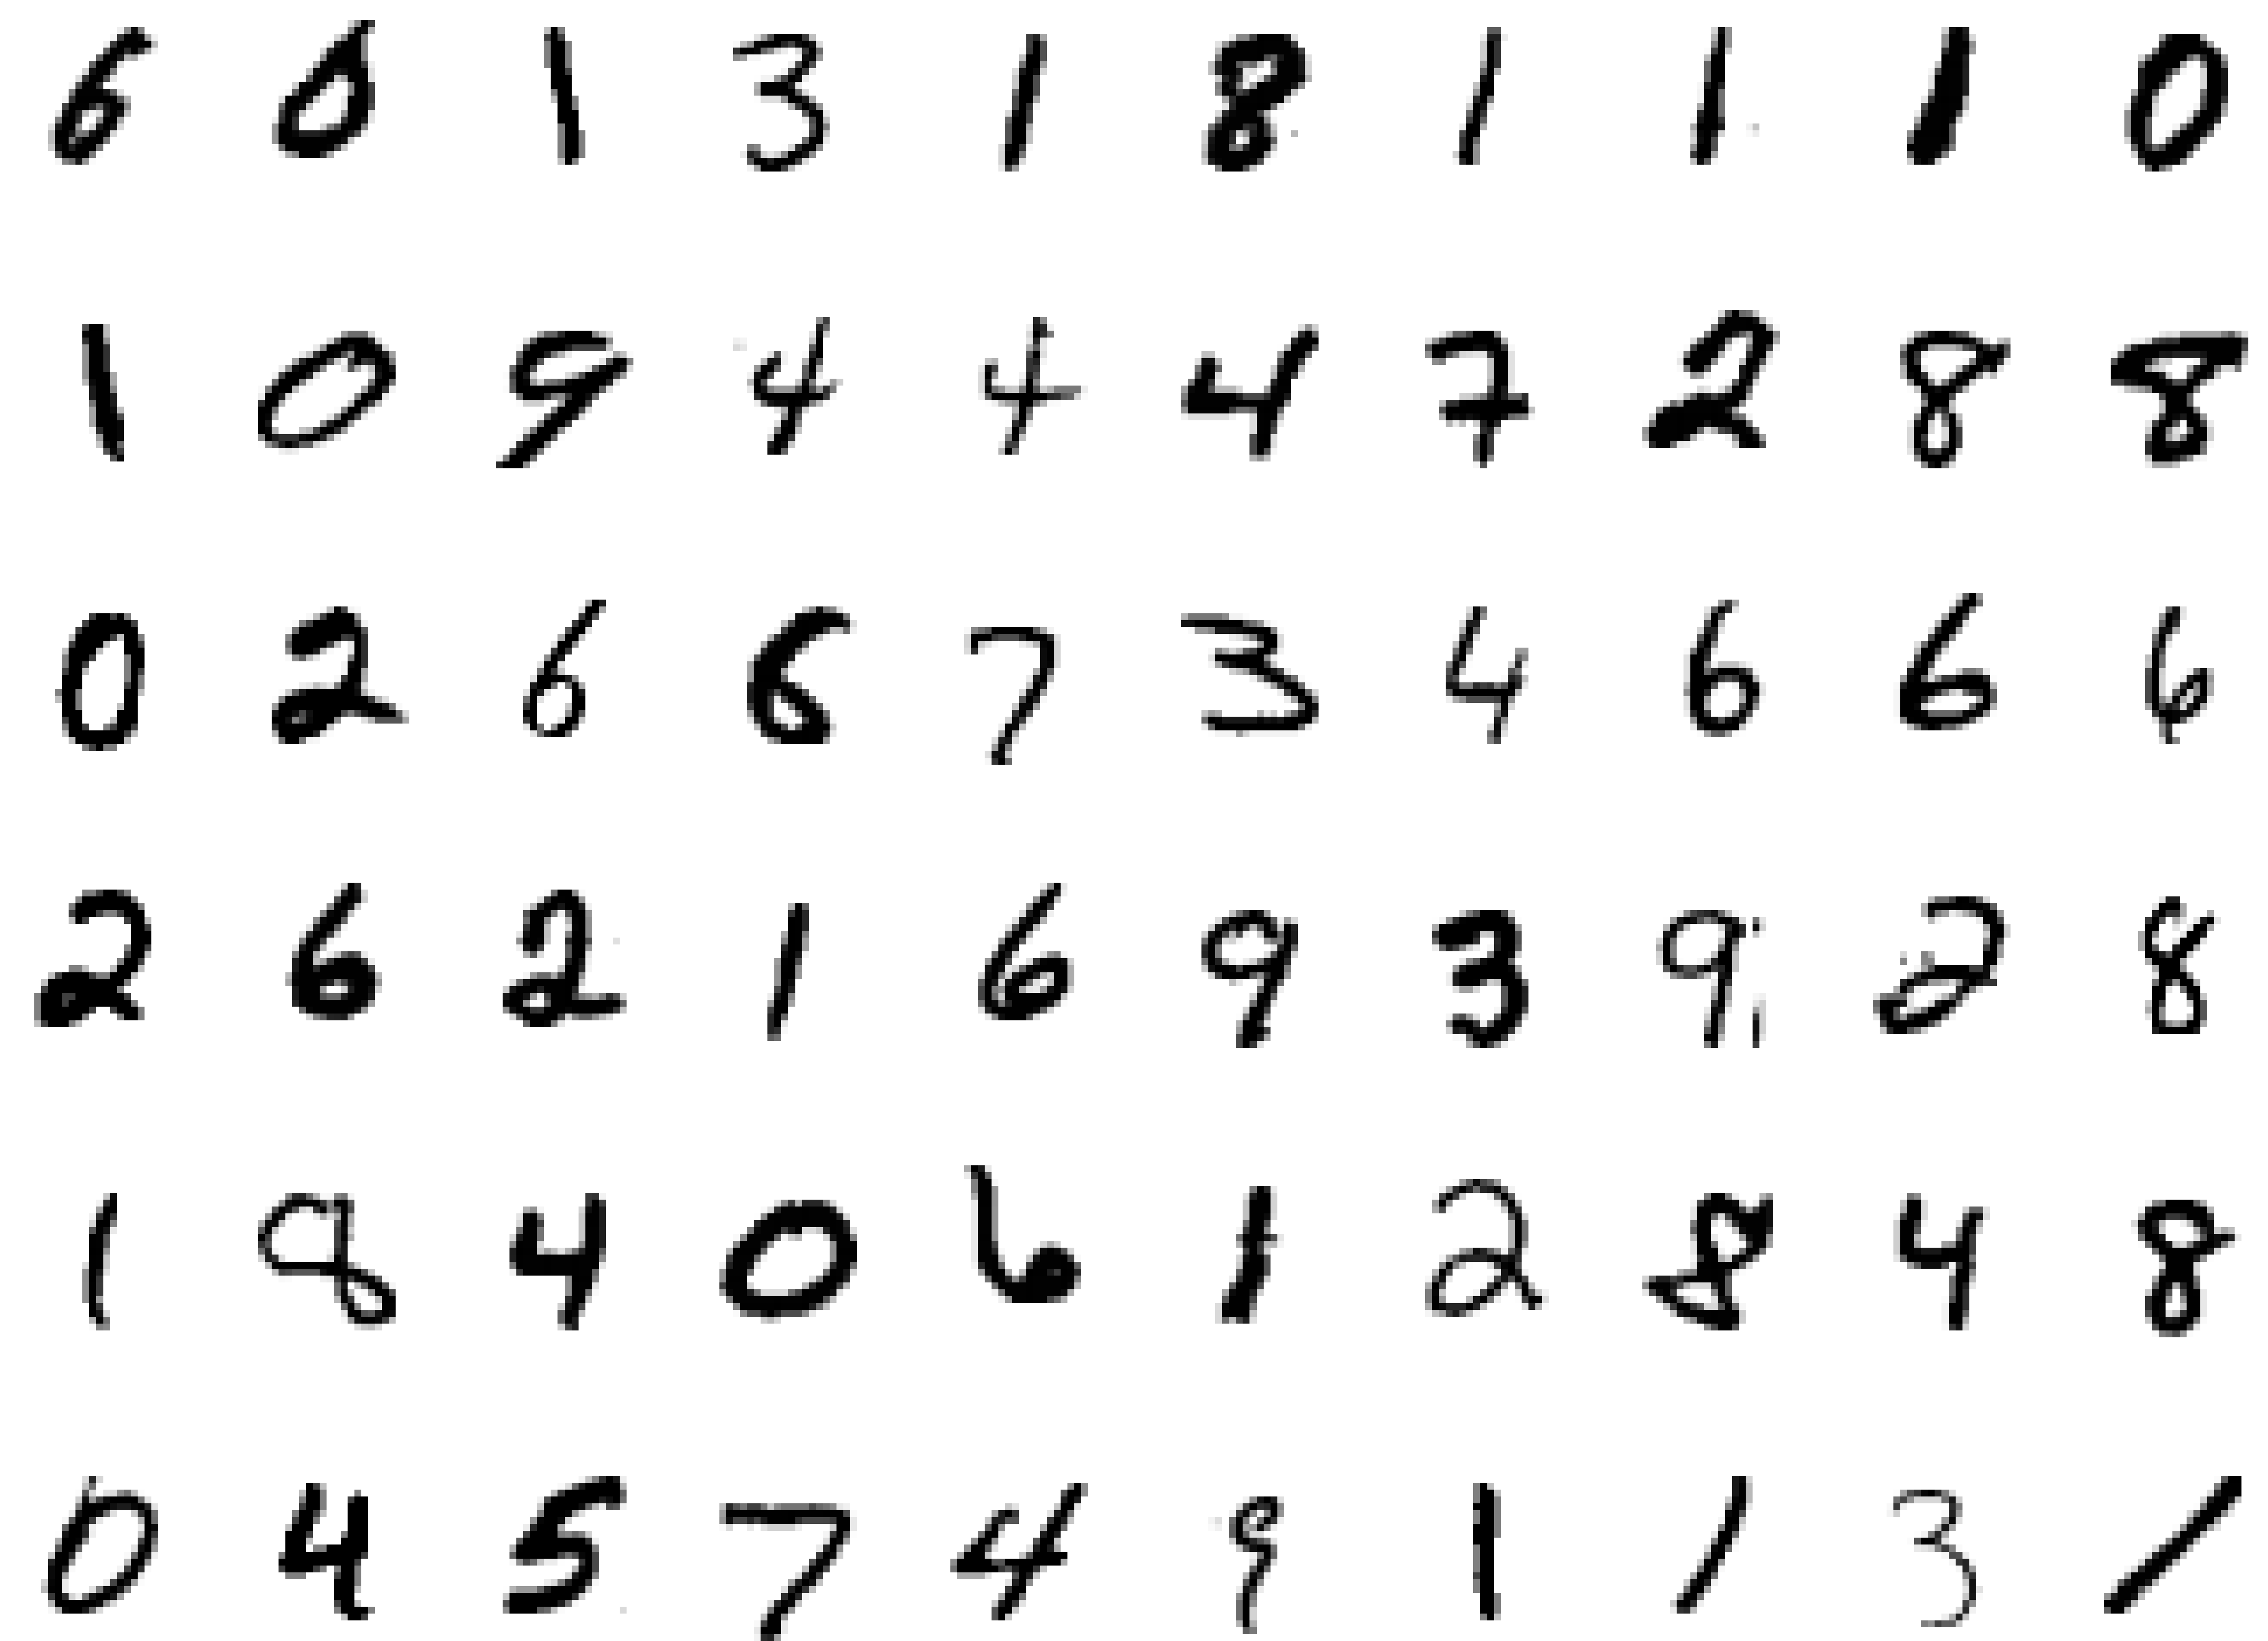 6 0 1 3 1 8 1 1 1 0
1 0 9 4 4 4 7 2 8 8
0 2 6 6 7 3 4 6 6 6
2 6 2 1 6 9 3 9 2 8
1 8 4 0 6 1 2 8 4 8
0 4 5 7 4 9 1 1 3 1